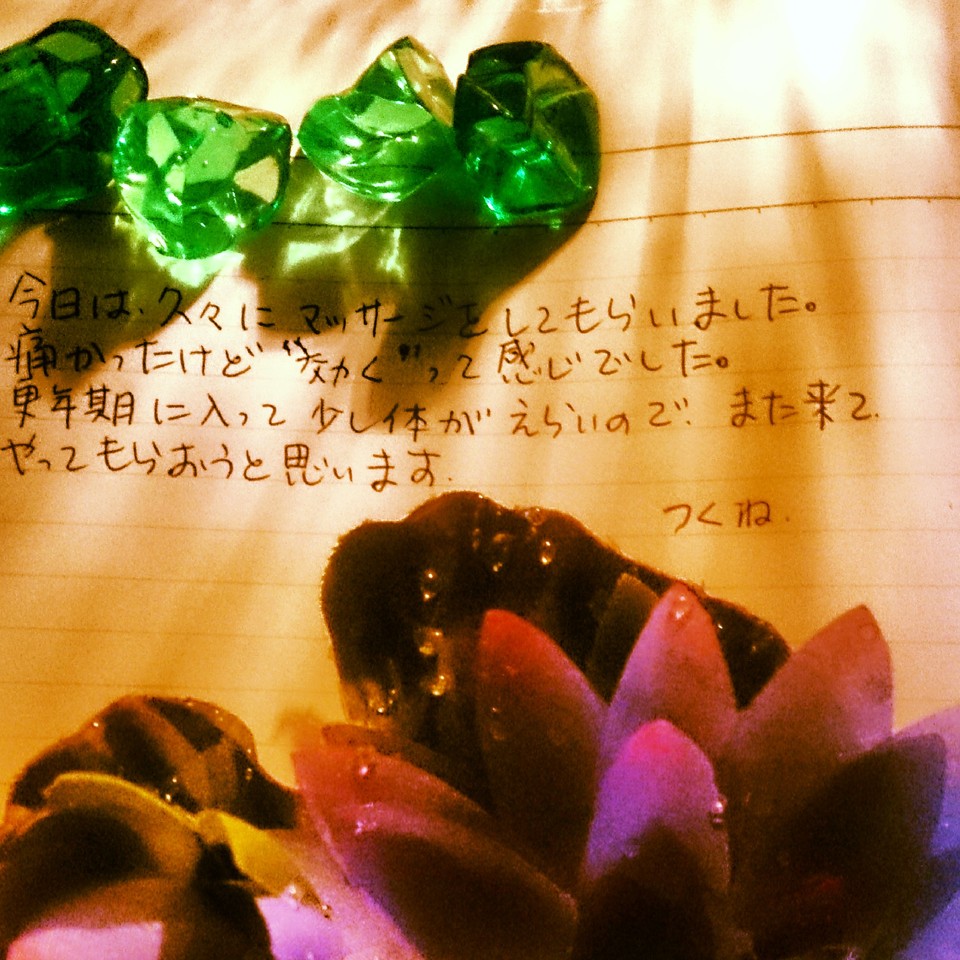 今日は、久々にマッサージをしてもらいました。
痛かったけど〝効く〟って感じでした。
更年期に入って少し体がえらいので、また来て、
やってもらおうと思います。
つくね.